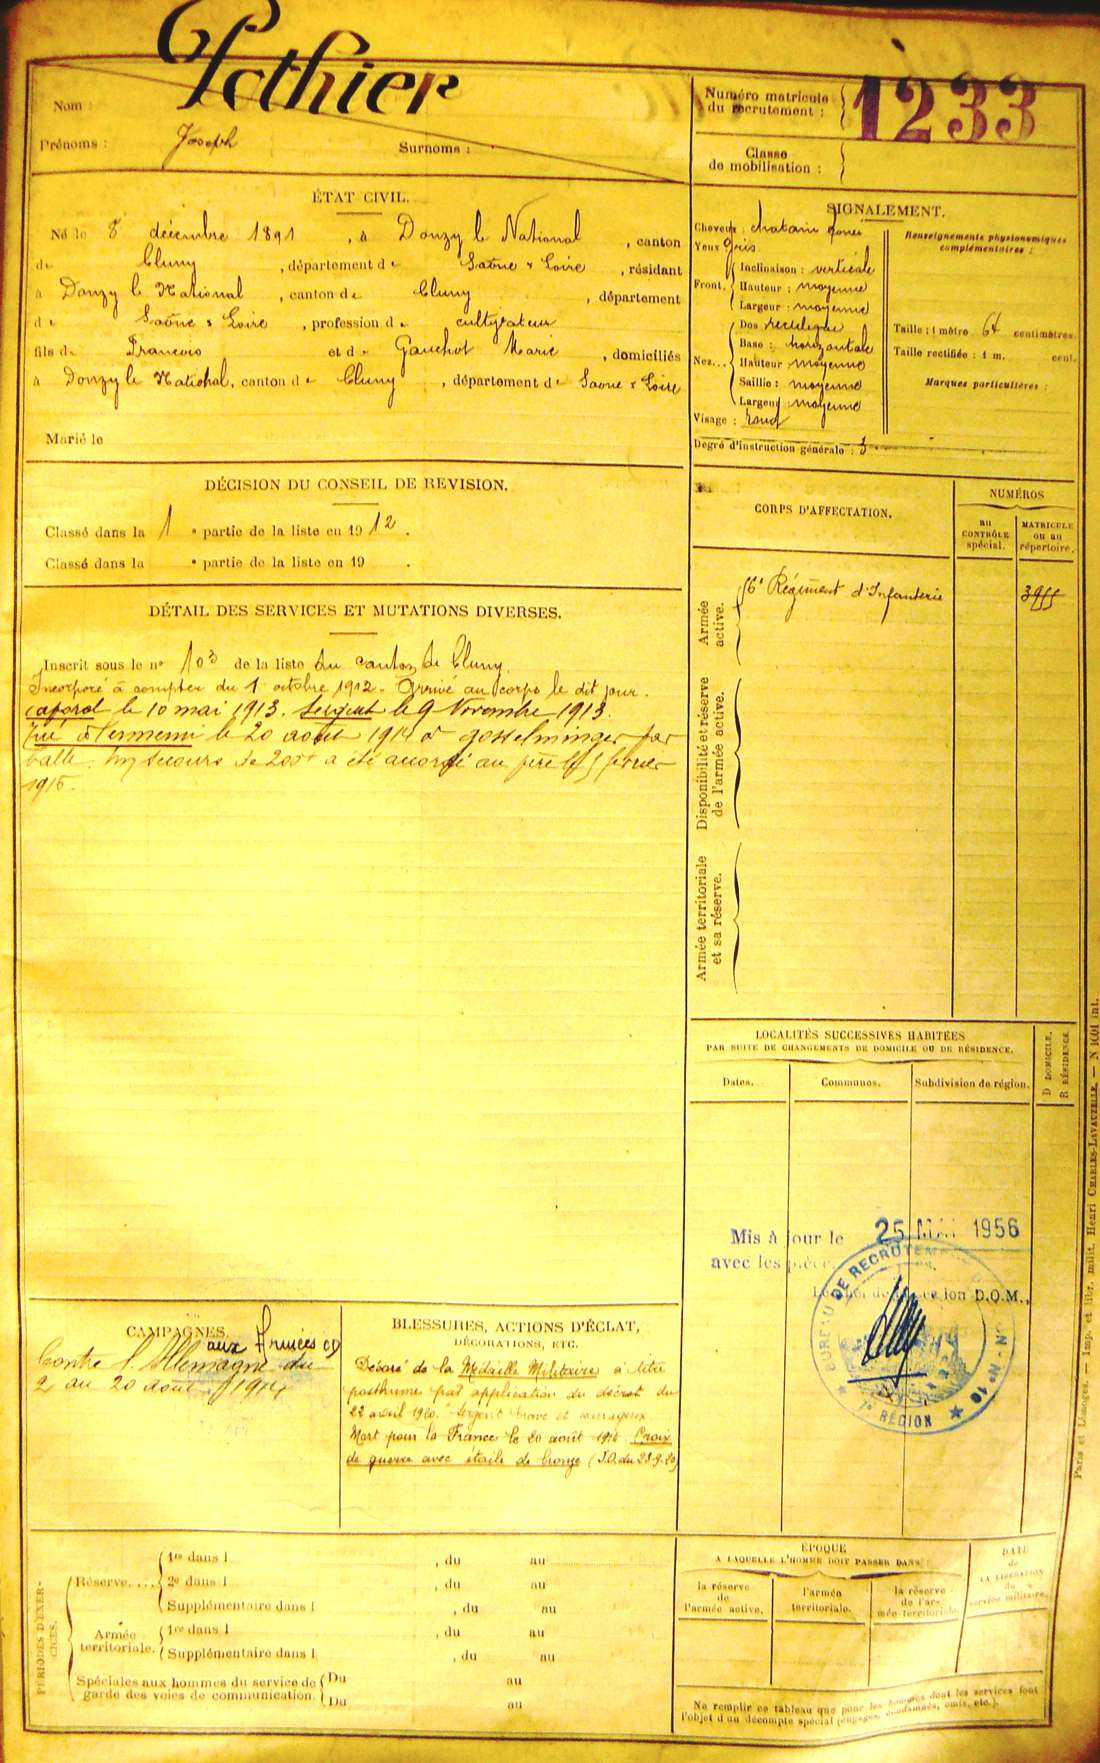 Nom : Pothier
Prénoms : Joseph Surnoms :
Numéro matricule du recrutement : 1233
Classe de mobilisation :
ÉTAT CIVIL.
Né le 8 décembre 1891, à Donzy le National, canton
de Cluny, département de Saône & Loire, résidant
à Donzy le National, canton de Cluny, département
de Saône & Loire, profession de cultivateur
fils de Francois et de Gauchot Marie, domiciliés
à Donzy le National, canton de Cluny, département de Saone & Loire
Marié le
SIGNALEMENT.
Cheveux : chatain
Yeux gris
Front. Inclinaison : verticale
Hauteur : moyenne
Largeur : moyenne
Nez... Dos rectiligne
Base : horizontale
Hauteur moyenne
Saillie : moyenne
Largeur : moyenne
Visage : rond
Degré d'instruction générale : 3
Renseignements physionomiques
complémentaires :
Taille : 1 mètre 64 centimètres.
Taille rectifiée : 1 m. cent.
Marques particulières :
DÉCISION DU CONSEIL DE REVISION.
Classé dans la 1 e partie de la liste en 1912.
Classé dans la e partie de la liste en 19 .
DÉTAIL DES SERVICES ET MUTATIONS DIVERSES.
Inscrit sous le n° 103 de la liste du canton de Cluny.
Incorporé à compter du 1 octobre 1912. Arrivé au corps le dit jour.
Caporal le 10 mai 1913. Sergent le 9 Novembre 1913.
Tué à l'ennemi le 20 août 1914 à Gosselminger par
balle. Un secours de 200 a été accordé au père le 5 février
1915.
CORPS D'AFFECTATION.
NUMÉROS
au CONTRÔLE spécial.
MATRICULE ou au répertoire.
Armée active.
56e Régiment d'Infanterie 3955
Disponibilité et réserve de l'armée active.
Armée territoriale et sa réserve.
LOCALITÉS SUCCESSIVES HABITÉES
PAR SUITE DE CHANGEMENTS DE DOMICILE OU DE RÉSIDENCE.
Dates. Communes. Subdivision de région.
D DOMICILE.
R RÉSIDENCE
Mis à jour le 25 MAI 1956
avec les pièces
D.O.M.,
BUREAU DE RECRUTEMENT
7e RÉGION
CAMPAGNES.
aux Armées
Contre l'Allemagne du
2 au 20 août 1914
BLESSURES, ACTIONS D'ÉCLAT,
DÉCORATIONS, ETC.
Décoré de la Médaille Militaire à titre
posthume par application du décret du
22 avril 1920. "Sergent brave et courageux
Mort pour la France le 20 août 1914. Croix
de guerre avec étoile de bronze (J.O. du 28-9-20)
PÉRIODES D'EXERCICES.
Réserve.... 1re dans l , du au
2e dans l , du au
Supplémentaire dans l , du au
Armée territoriale. 1re dans l , du au
Supplémentaire dans l , du au
Spéciales aux hommes du service de garde des voies de communication. Du au
Du au
ÉPOQUE
A LAQUELLE L'HOMME DOIT PASSER DANS :
la réserve de l'armée active.
l'armée territoriale.
la réserve de l'armée territoriale.
DATE de LA LIBÉRATION du service militaire.
Ne remplir ce tableau que pour les hommes dont les services font
l'objet d'un décompte spécial (engagés, condamnés, omis, etc.).
Paris et Limoges. — Imp. et libr. milit. Henri CHARLES-LAVAUZELLE. — N 1001 int.